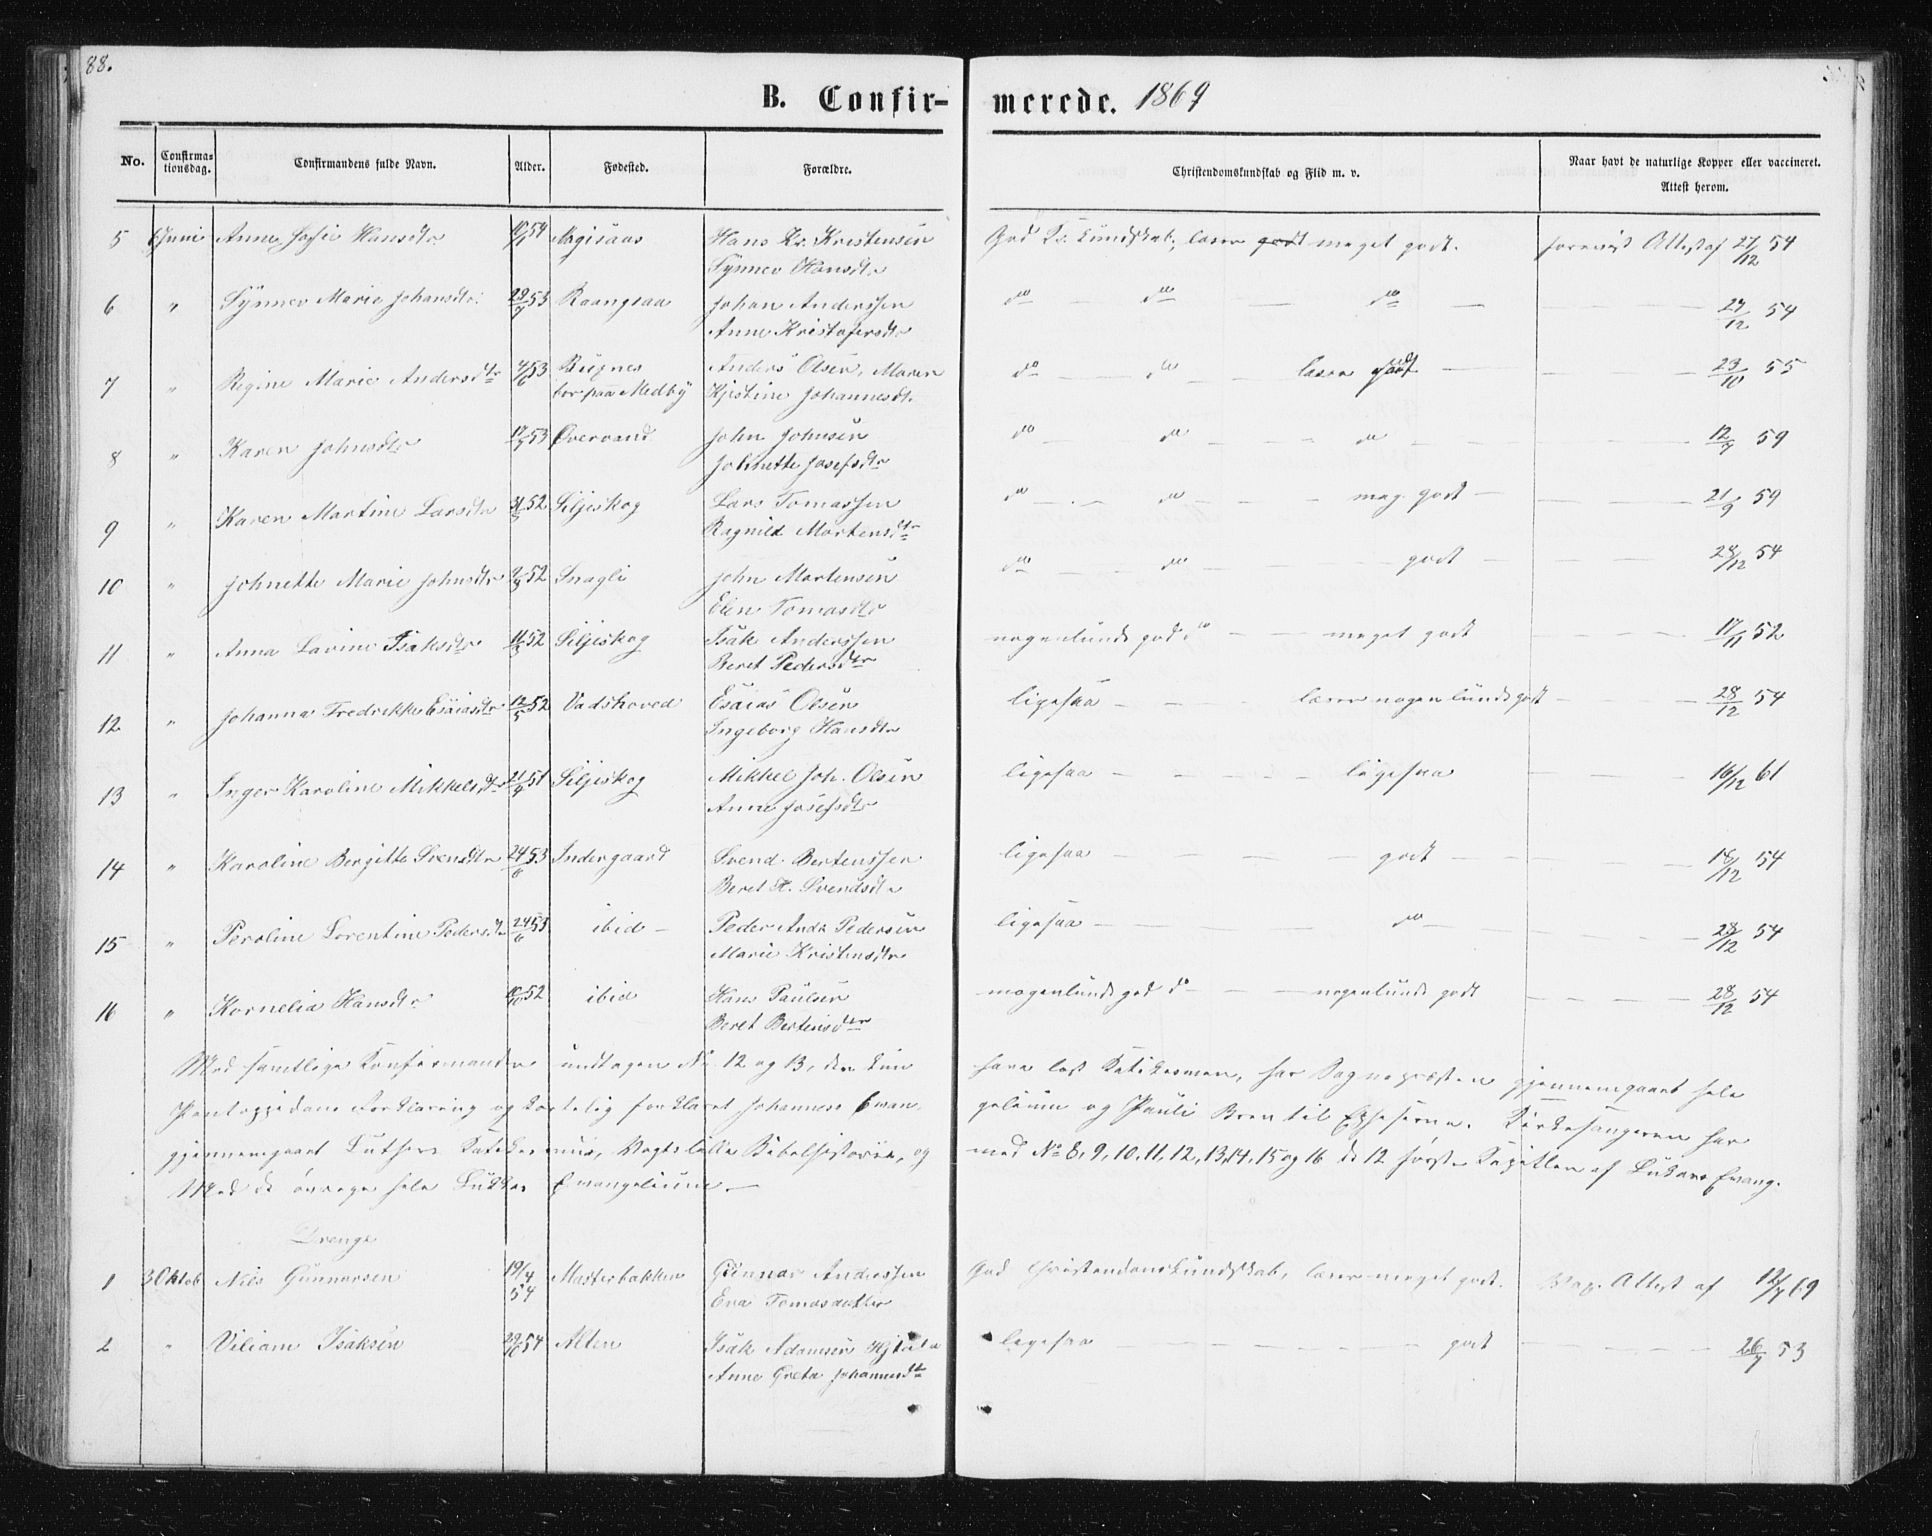 88.
B. Confir- merede. 1869
No. Confirma- tionsdag. Confirmandens fulde Navn. Alder. Fødested. Forældre. Christendomskundskab og Flid m. v. Naar havt de naturlige Kopper eller vaccineret. Attest herom.
5 6 Juni Anne Sofie Hansdtr 54 Hans Kr. Kristensen God Kr. Kundskab; læser godt meget godt. forevist Attest af 27/12 54
Synnev Hansdtr
6 " Synnev Marie Johansdtr 53 Johan Anderssen do — do — do — 27/12 54
Anne Kristofersdtr
7 " Regine Marie Andersdtr 4/6 53 Bugnes Anders Olsen, Maren do — do — læser godt — 23/10 55
bor paa Medby Kjistine Johannesdtr
8 " Karen Johnsdtr 53 Overvand John Johnsen do — do — do — 59
Johnette Josefsdtr
9 " Karen Martine Larsdtr 52 Siljeskog Lars Tomassen do — do — meg. godt — 21/9 59
Ragnild Mortensdtr
10 " Johnette Marie Johnsdtr 52 Snagli John Mortensen do — do — godt — 28/12 54
Elen Tomasdtr
11 " Anna Lavine Isaksdtr 52 Siljeskog Isak Anderssen nogenlunde god do — meget godt — 17/11 52
Beret Pedersdtr
12 " Johanna Fredrikke Esaiasdtr 12/5 52 Vadshoved Esaias Olsen ligesaa — læser nogenlunde godt — 28/12 54
Ingeborg Hansdtr
13 " Inger Karoline Mikkelsdtr 21/9 51 Siljeskog Mikkel Joh. Olsen ligesaa — ligesaa — 16/12 61
Anne Josefsdtr
14 " Karoline Bergitte Svendsdtr 24/6 53 Indergaard Svend Bertenssen ligesaa — godt — 18/12 54
Beret H. Svendsdtr
15 " Peroline Lorentine Pedersdtr 24/6 53 ibid — Peder Andr. Pedersen ligesaa — do — 28/12 54
Marie Kristensdtr
16 " Kornelia Hansdtr 10/10 52 ibid Hans Paulsen nogenlunde god do — nogenlunde godt — 28/12 54
Beret Bertensdtr
Med samtlige Konfirmander undtagen No 12 og 13, der kun have læst Katekismen, har Sognepræsten gjennemgaaet hele
Pontoppidans Forklaring og kortelig forklaret Johannes's Evan- gelium og Pauli Brev til Epheserne. Kirkesangeren har
gjennemgaaet Luthers Katekismus, Vogts lille Bibelhistorie, og med No 8, 9, 10, 11, 12, 13, 14, 15 og 16 de 12 første Kapitler af Lukas's Evang.
Med de øvrige hele Lukas Evangelium. —
Drenge
1 3 Oktob Nils Gunnarsen 19/4 54 Masterbakken Gunnar Anderssen God Christendomskundskab, læser meget godt. Vax. Attest af 12/7 69
Eva Tomasdatter
2 " Viliam Isaksen 29/10 54 Alten Isak Adamsen ligesaa — godt — 26/7 53
Anne Greta Johannesdtr